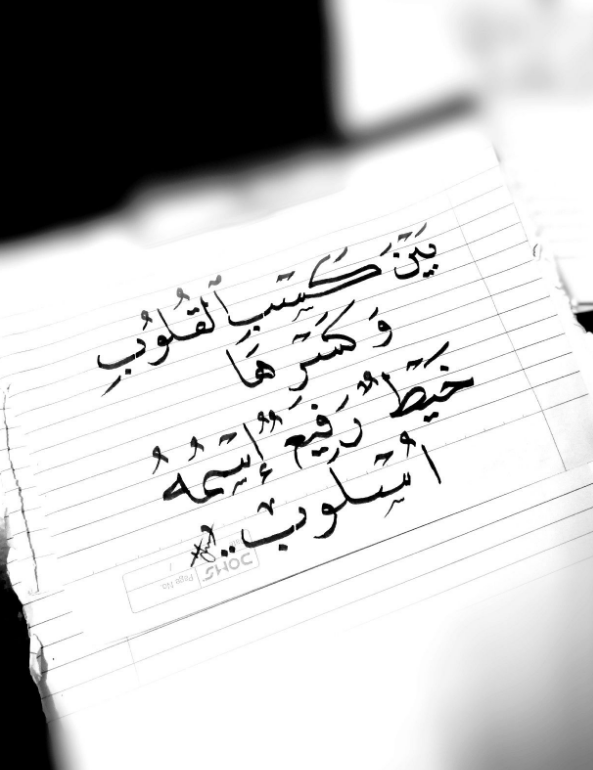 بَيْنَ كَسْبِ الْقُلُوبِ
وَ كَسْرِهَا
خَيْطٌ رَفِيعٌ إِسْمُهُ
أُسْلُوبْ..
DOMS
Page No.